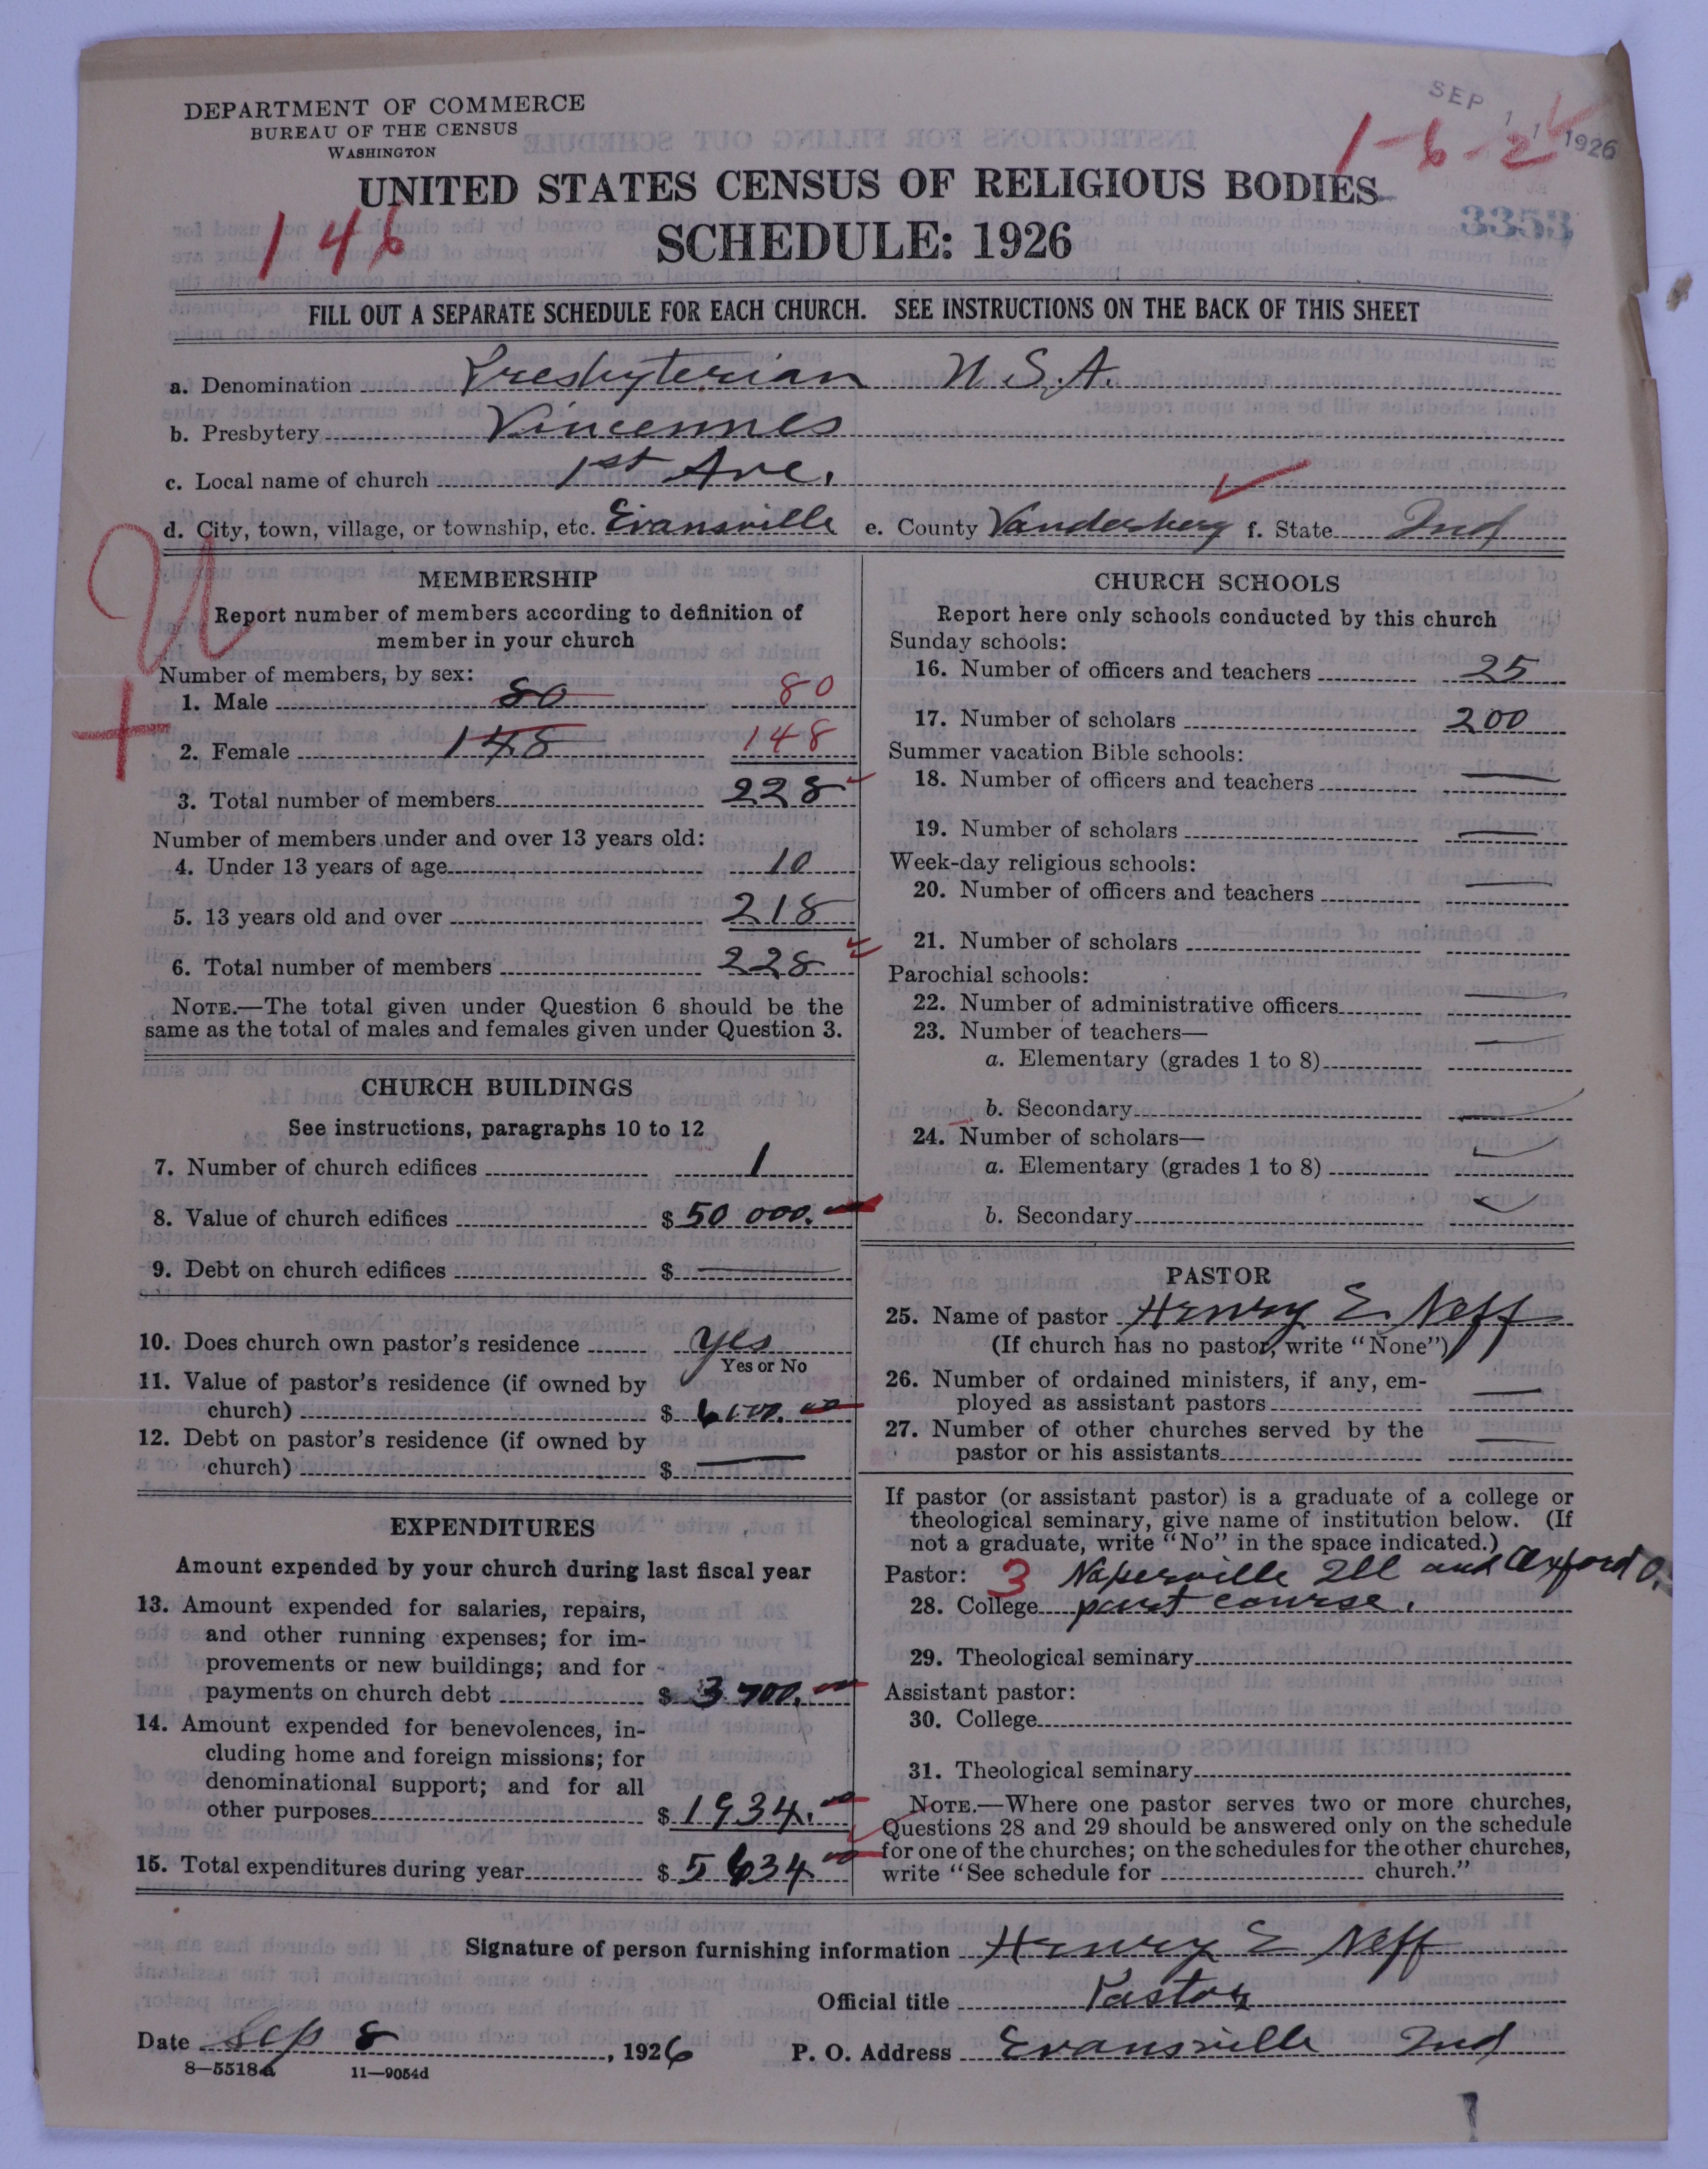 SEP 11 1926
DEPARTMENT OF COMMERCE
BUREAU OF THE CENSUS
WASHINGTON
1-6-2
UNITED STATES CENSUS OF RELIGIOUS BODIES
146
3353
SCHEDULE: 1926
FILL OUT A SEPARATE SCHEDULE FOR EACH CHURCH. SEE INSTRUCTIONS ON THE BACK OF THIS SHEET
a. Denomination Presbyterian U.S.A.
b. Presbytery Vincennes
c. Local name of church 1st Ave.
d. City, town, village, or township, etc. Evansville e. County Vanderberg f. State Ind
MEMBERSHIP
Report number of members according to definition of
member in your church
Number of members, by sex:
1. Male 80 80
2. Female 148 148
3. Total number of members 228
Number of members under and over 13 years old:
4. Under 13 years of age 10
5. 13 years old and over 218
6. Total number of members 228
NOTE.—The total given under Question 6 should be the
same as the total of males and females given under Question 3.
CHURCH BUILDINGS
See instructions, paragraphs 10 to 12
7. Number of church edifices 1
8. Value of church edifices $ 50 000.
9. Debt on church edifices $ —
10. Does church own pastor's residence yes
Yes or No
11. Value of pastor's residence (if owned by
church) $ 6000.
12. Debt on pastor's residence (if owned by
church) $ —
EXPENDITURES
Amount expended by your church during last fiscal year
13. Amount expended for salaries, repairs,
and other running expenses; for im-
provements or new buildings; and for
payments on church debt $ 3 700.
14. Amount expended for benevolences, in-
cluding home and foreign missions; for
denominational support; and for all
other purposes $ 1934.
15. Total expenditures during year $ 5 634
CHURCH SCHOOLS
Report here only schools conducted by this church
Sunday schools:
16. Number of officers and teachers 25
17. Number of scholars 200
Summer vacation Bible schools:
18. Number of officers and teachers —
19. Number of scholars —
Week-day religious schools:
20. Number of officers and teachers —
21. Number of scholars
Parochial schools:
22. Number of administrative officers —
23. Number of teachers—
a. Elementary (grades 1 to 8) —
b. Secondary —
24. Number of scholars—
a. Elementary (grades 1 to 8)
b. Secondary
PASTOR
25. Name of pastor Henry E. Neff
(If church has no pastor, write "None")
26. Number of ordained ministers, if any, em-
ployed as assistant pastors —
27. Number of other churches served by the
pastor or his assistants —
If pastor (or assistant pastor) is a graduate of a college or
theological seminary, give name of institution below. (If
not a graduate, write "No" in the space indicated.)
Pastor: 3 Naperville Ill and Oxford O.
28. College part course.
29. Theological seminary
Assistant pastor:
30. College
31. Theological seminary
NOTE.—Where one pastor serves two or more churches,
Questions 28 and 29 should be answered only on the schedule
for one of the churches; on the schedules for the other churches,
write "See schedule for church."
Signature of person furnishing information Henry E Neff
Official title Pastor
Date Sep 8, 1926 P. O. Address Evansville Ind
8-5518a 11-9054d